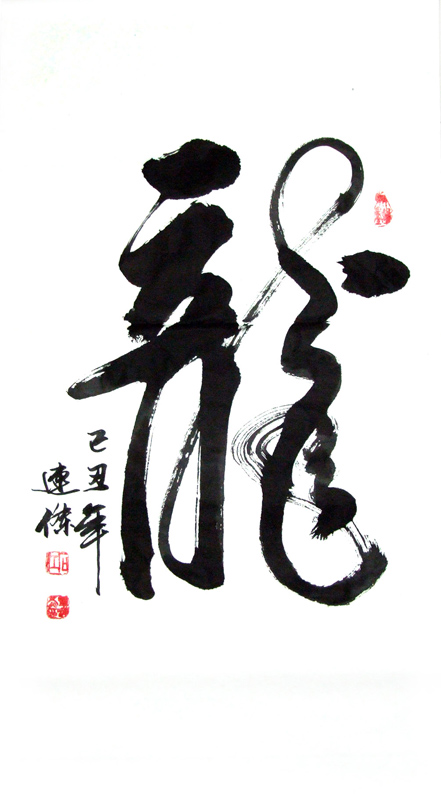 龍
己丑年
連傑